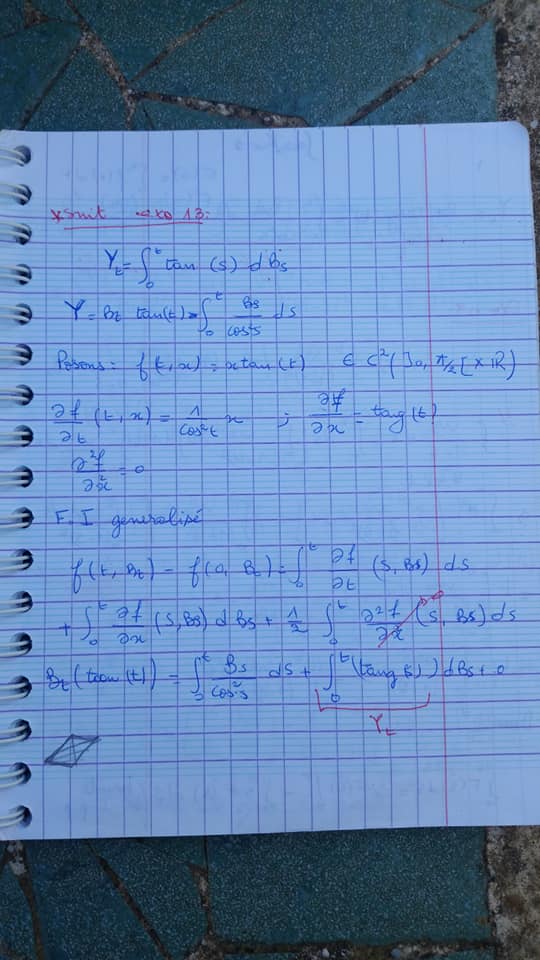 * Suit exo 13:
Y_t = ∫_0^t tan (s) dB_s
Y = B_t tan(t) - ∫_0^t B_s/cos²s ds
Posons : f(t,x) = x tan(t) ∈ C²(]0, π/2[ × IR)
∂f/∂t (t,x) = 1/cos²t x ; ∂f/∂x = tang(t)
∂²f/∂x² = 0
F. I generalisé
f(t, B_t) - f(0, B_0) = ∫_0^t ∂f/∂t (s, B_s) ds
+ ∫_0^t ∂f/∂x (s, B_s) dB_s + 1/2 ∫_0^t ∂²f/∂x² (s, B_s) ds → 0
B_t (tan(t)) = ∫_0^t B_s/cos²s ds + ∫_0^t (tang(s)) dB_s + 0
Y_t